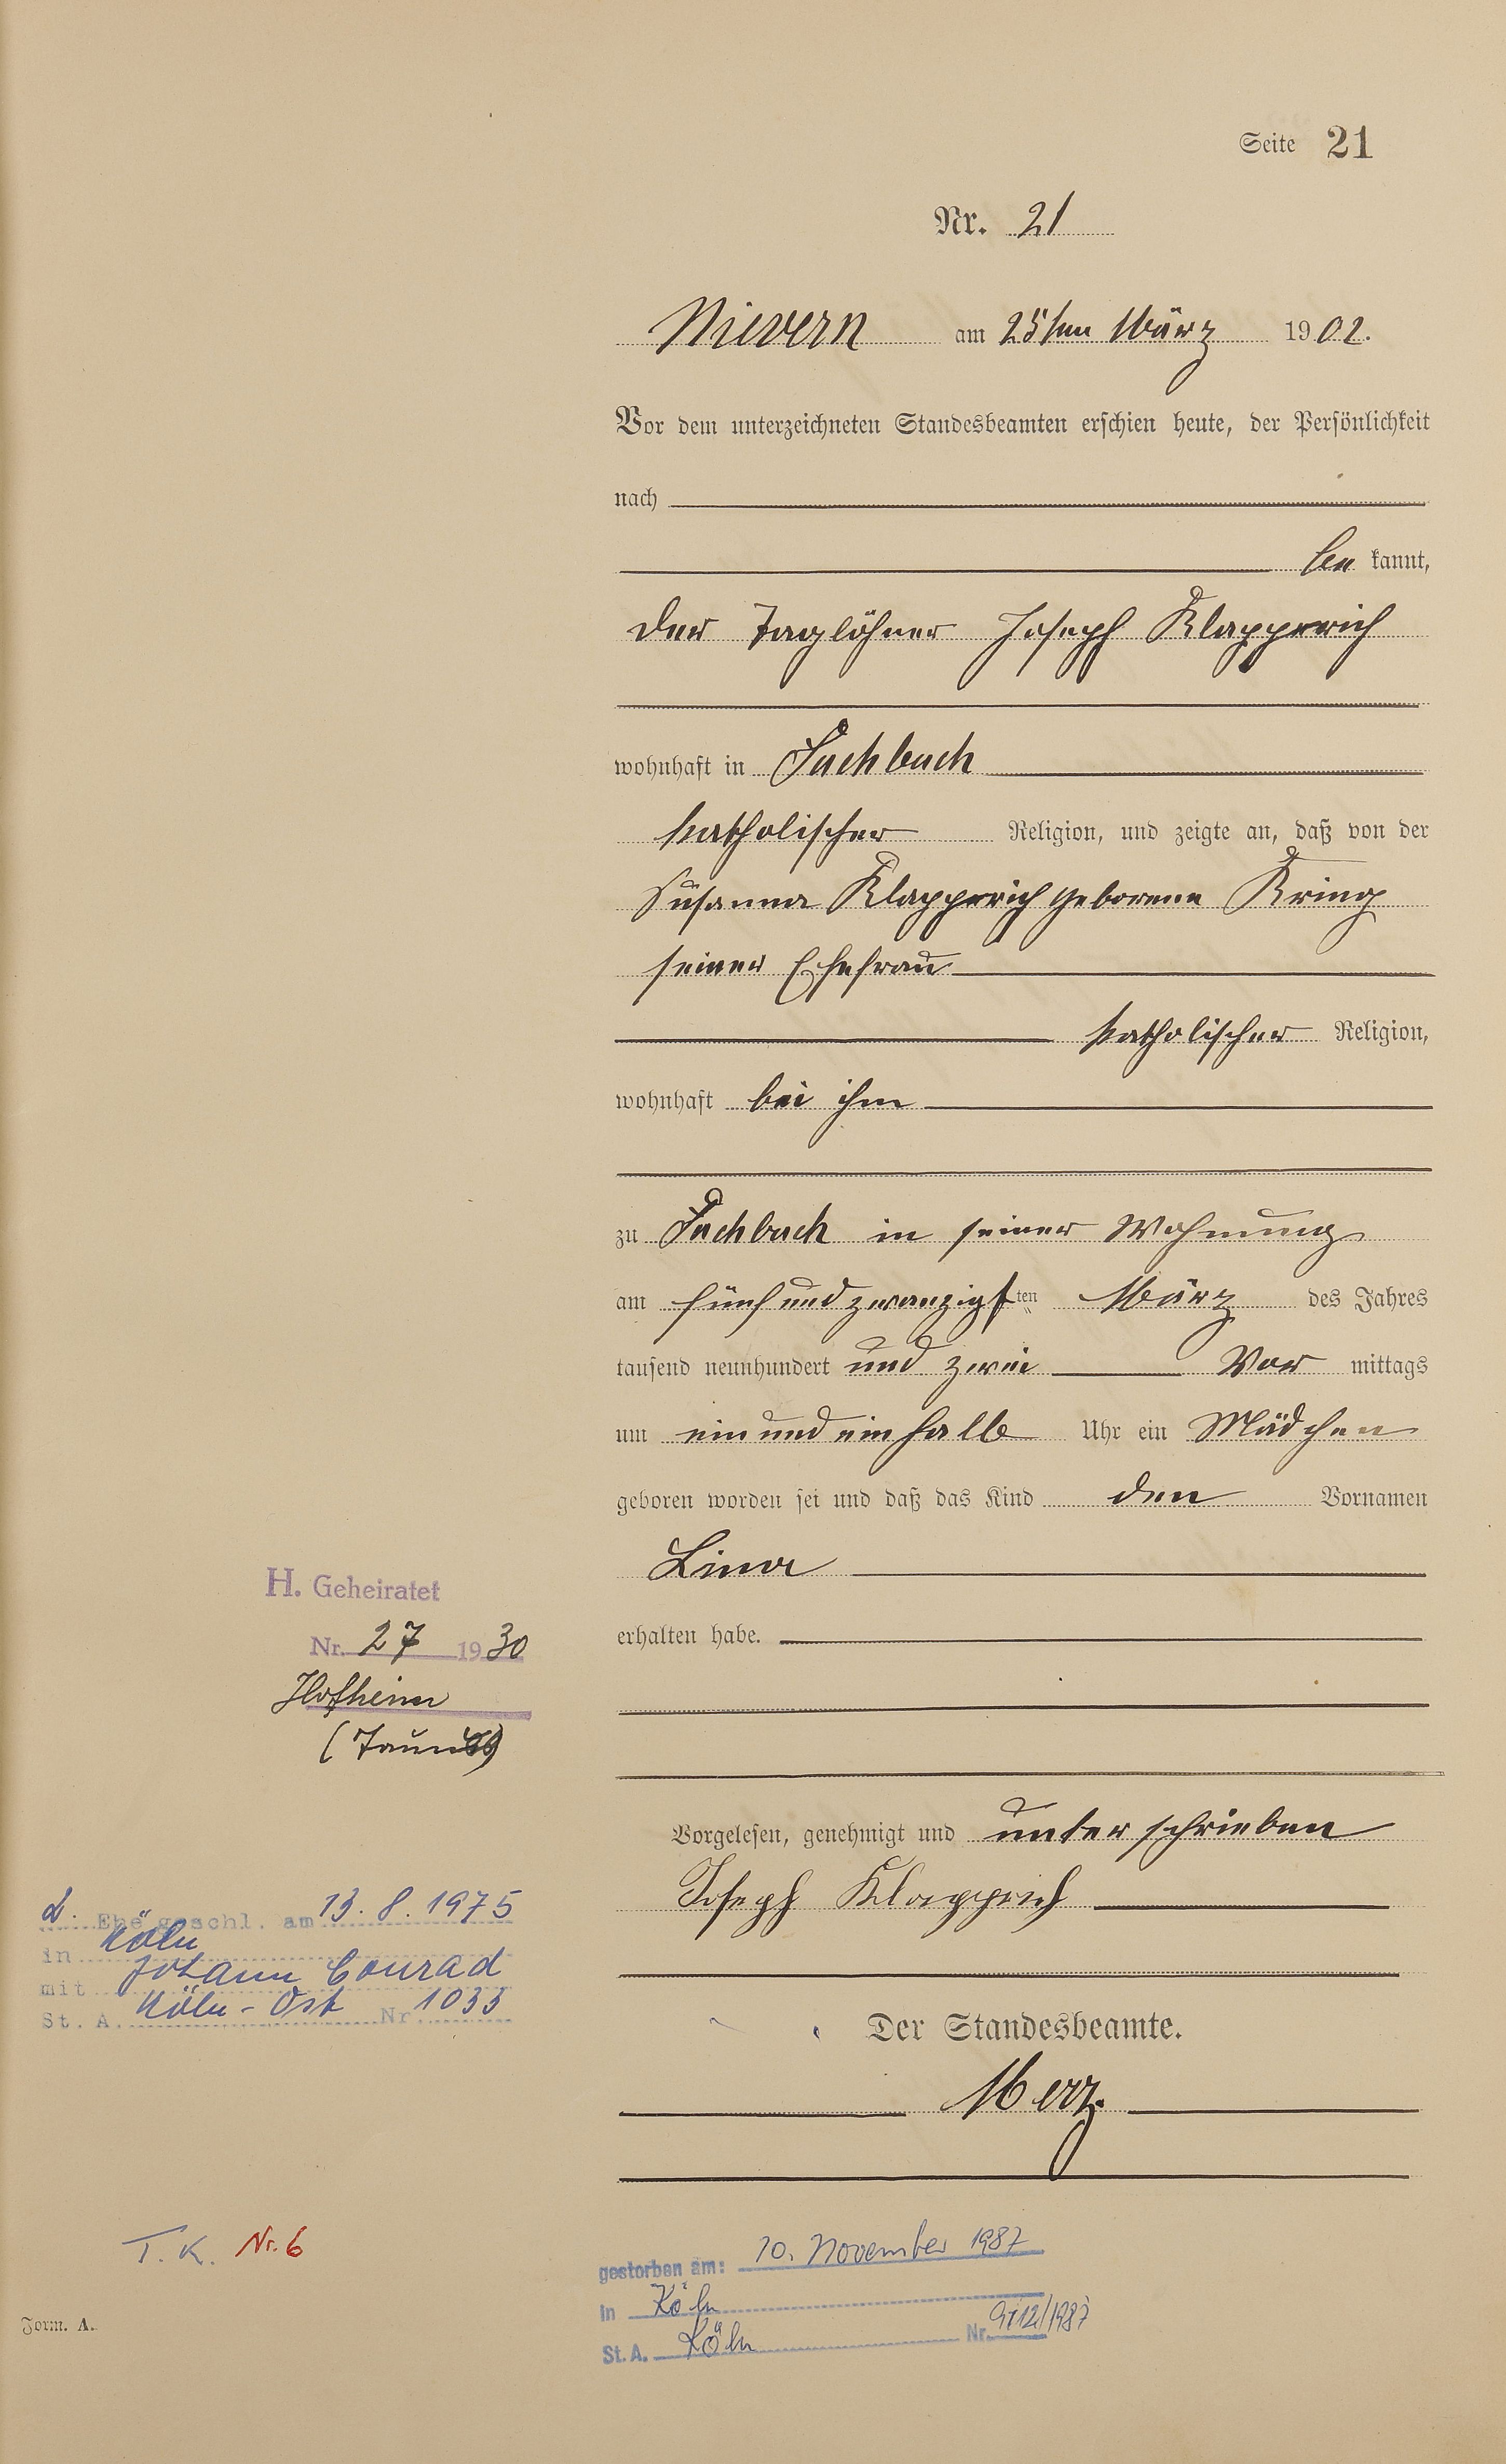 Seite 21
Nr. 21
Nievern am 25ten März 1902.
Vor dem unterzeichneten Standesbeamten erschien heute, der Persönlichkeit
nach
be kannt,
der Taglöhner Joseph Klapperich
wohnhaft in Fachbach
katholischer Religion, und zeigte an, daß von der
Susanna Klapperich geborene Kring
seiner Ehefrau
katholischer Religion,
wohnhaft bei ihm
zu Fachbach in seiner Wohnung
am fünf und zwanzigsten März des Jahres
tausend neunhundert und zwei Vor mittags
um ein und ein halb Uhr ein Mädchen
geboren worden sei und daß das Kind den Vornamen
Lina
erhalten habe.
Vorgelesen, genehmigt und unterschrieben
Joseph Klapperich
Der Standesbeamte.
Merz.
H. Geheiratet
Nr. 27 1930
Hofheim
(Taunus)
2. Ehe geschl. am 13. 8. 1975
in Köln
mit Johann Conrad
St. A. Köln-Ost Nr. 1033
T. K. Nr. 6
gestorben am: 10. November 1987
in Köln
St. A. Köln Nr. /1987
Form. A.